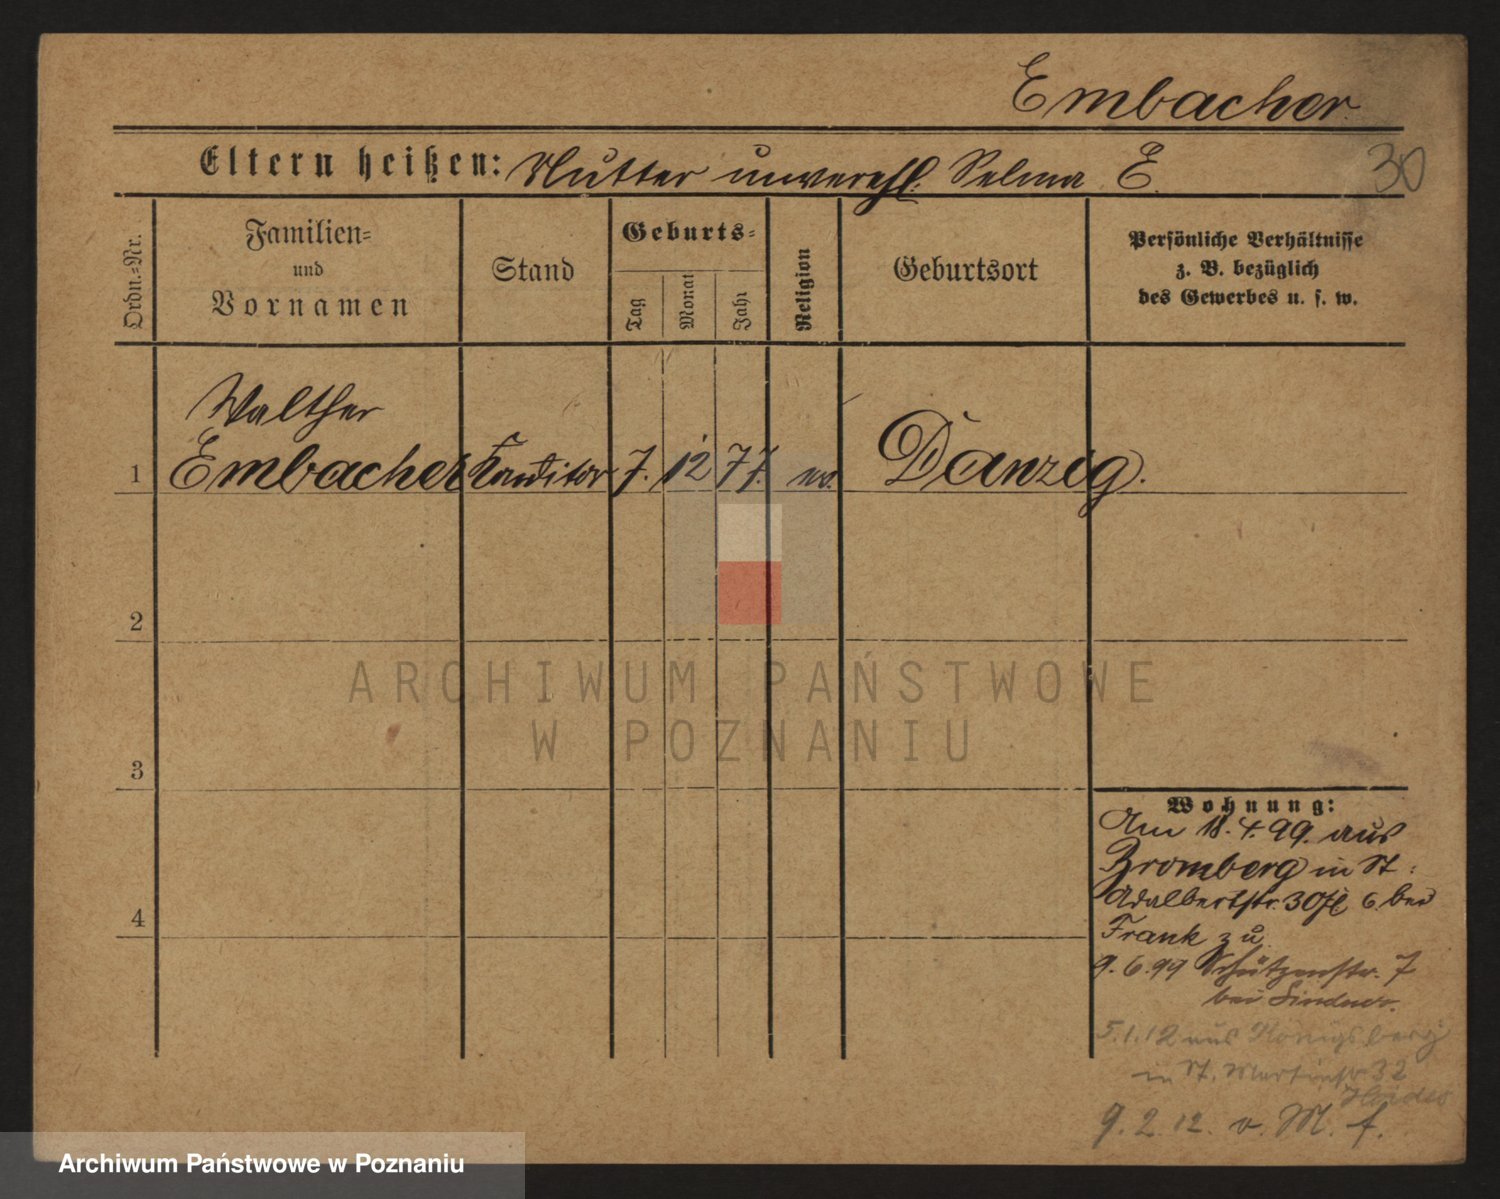 Embacher.
30
Eltern heißen: Mutter unverehl. Selma E.
Ordn.=Nr.
Familien=
und
Vornamen
Stand
Geburts=
Tag
Monat
Jahr
Religion
Geburtsort
Persönliche Verhältnisse
z. B. bezüglich
des Gewerbes u. s. w.
Walther
1 Embacher Konditor 7. 12 77. ev. Danzig.
2
3
4
Wohnung:
Am 18. 4. 99. aus
Bromberg in St:
Adalbertstr. 30 6. bei
Frank zu
9. 6. 99 Schützenstr. 7
bei
5. 1. 12 aus Königsberg
in St. Martinstr 32
9. 2. 12. v. M. f.
ARCHIWUM PAŃSTWOWE
W POZNANIU
Archiwum Państwowe w Poznaniu